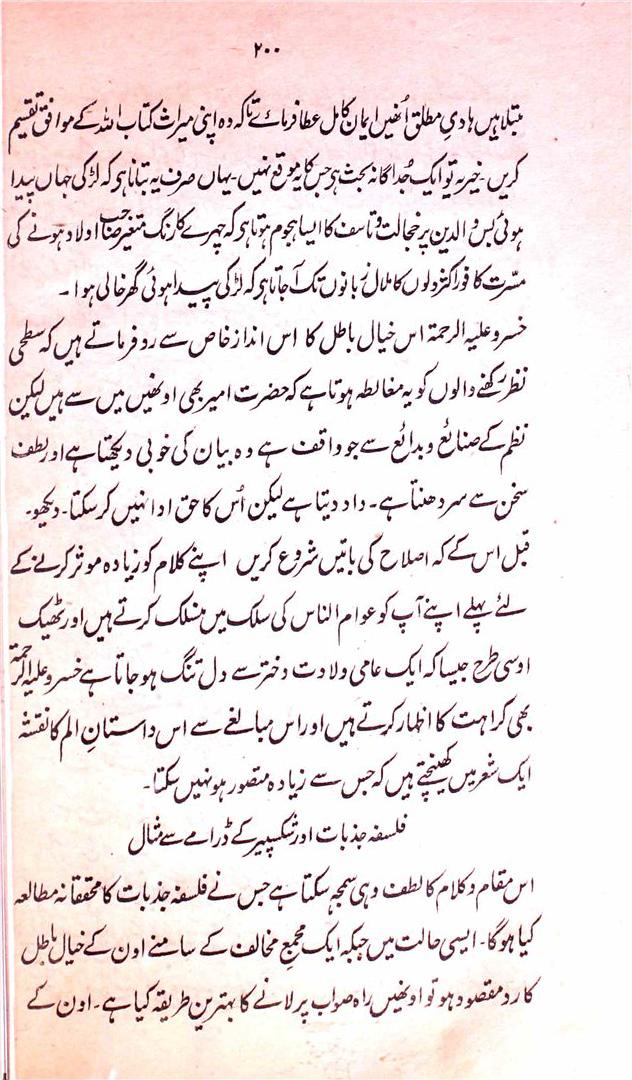 ۲۰۰
مبتلا ہیں ہادیِ مطلق اُنھیں ایمان کامل عطا فرمائے تاکہ وہ اپنی میراث کتاب اللہ کے موافق تقسیم
کریں۔ خیر یہ تو ایک جُداگانہ بحث ہی جس کا یہ موقع نہیں۔ یہاں صرف یہ بتانا ہو کہ لڑکی جہاں پیدا
ہوئی بس والدین پر خجالت و تاسف کا ایسا ہجوم ہوتا ہو کہ چہرے کا رنگ متغیر صاحب اولاد ہونے کی
مسّرت کافور اکثر دلوں کا ملال زبانوں تک آجاتا ہو کہ لڑکی پیدا ہوئی گھر خالی ہوا۔
خسرو علیہ الرحمۃ اس خیال باطل کا اس انداز خاص سے رد فرماتے ہیں کہ سطحی
نظر رکھنے والوں کو یہ مغالطہ ہوتا ہے کہ حضرت امیر بھی اونھیں میں سے ہیں لیکن
نظم کے صنائع و بدائع سے جو واقف ہے وہ بیان کی خوبی دیکھتا ہے اور لطف
سخن سے سر دھنتا ہے۔ داد دیتا ہے لیکن اُس کا حق ادا نہیں کر سکتا۔ دیکھو۔
قبل اس کے کہ اصلاح کی باتیں شروع کریں اپنے کلام کو زیادہ موثر کرنے کے
لئے پہلے اپنے آپ کو عوام الناس کی سلک میں منسلک کرتے ہیں اور ٹھیک
اوسی طرح جیسا کہ ایک عامی ولادت دختر سے دل تنگ ہو جاتا ہے خسرو علیہ الرحمۃ
بھی کراہت کا اظہار کرتے ہیں اور اس مبالغے سے اس داستانِ الم کا نقشہ
ایک شعر میں کھینچتے ہیں کہ جس سے زیادہ متصور ہو نہیں سکتا۔
فلسفہ جذبات اور شکسپیر کے ڈرامے سے مثال
اس مقام و کلام کا لطف وہی سمجھ سکتا ہے جس نے فلسفہ جذبات کا محققانہ مطالعہ
کیا ہوگا۔ ایسی حالت میں جبکہ ایک مجمع مخالف کے سامنے اون کے خیال باطل
کا رد مقصود ہو تو اونھیں راہ صواب پر لانے کا بہترین طریقہ کیا ہے۔ اون کے